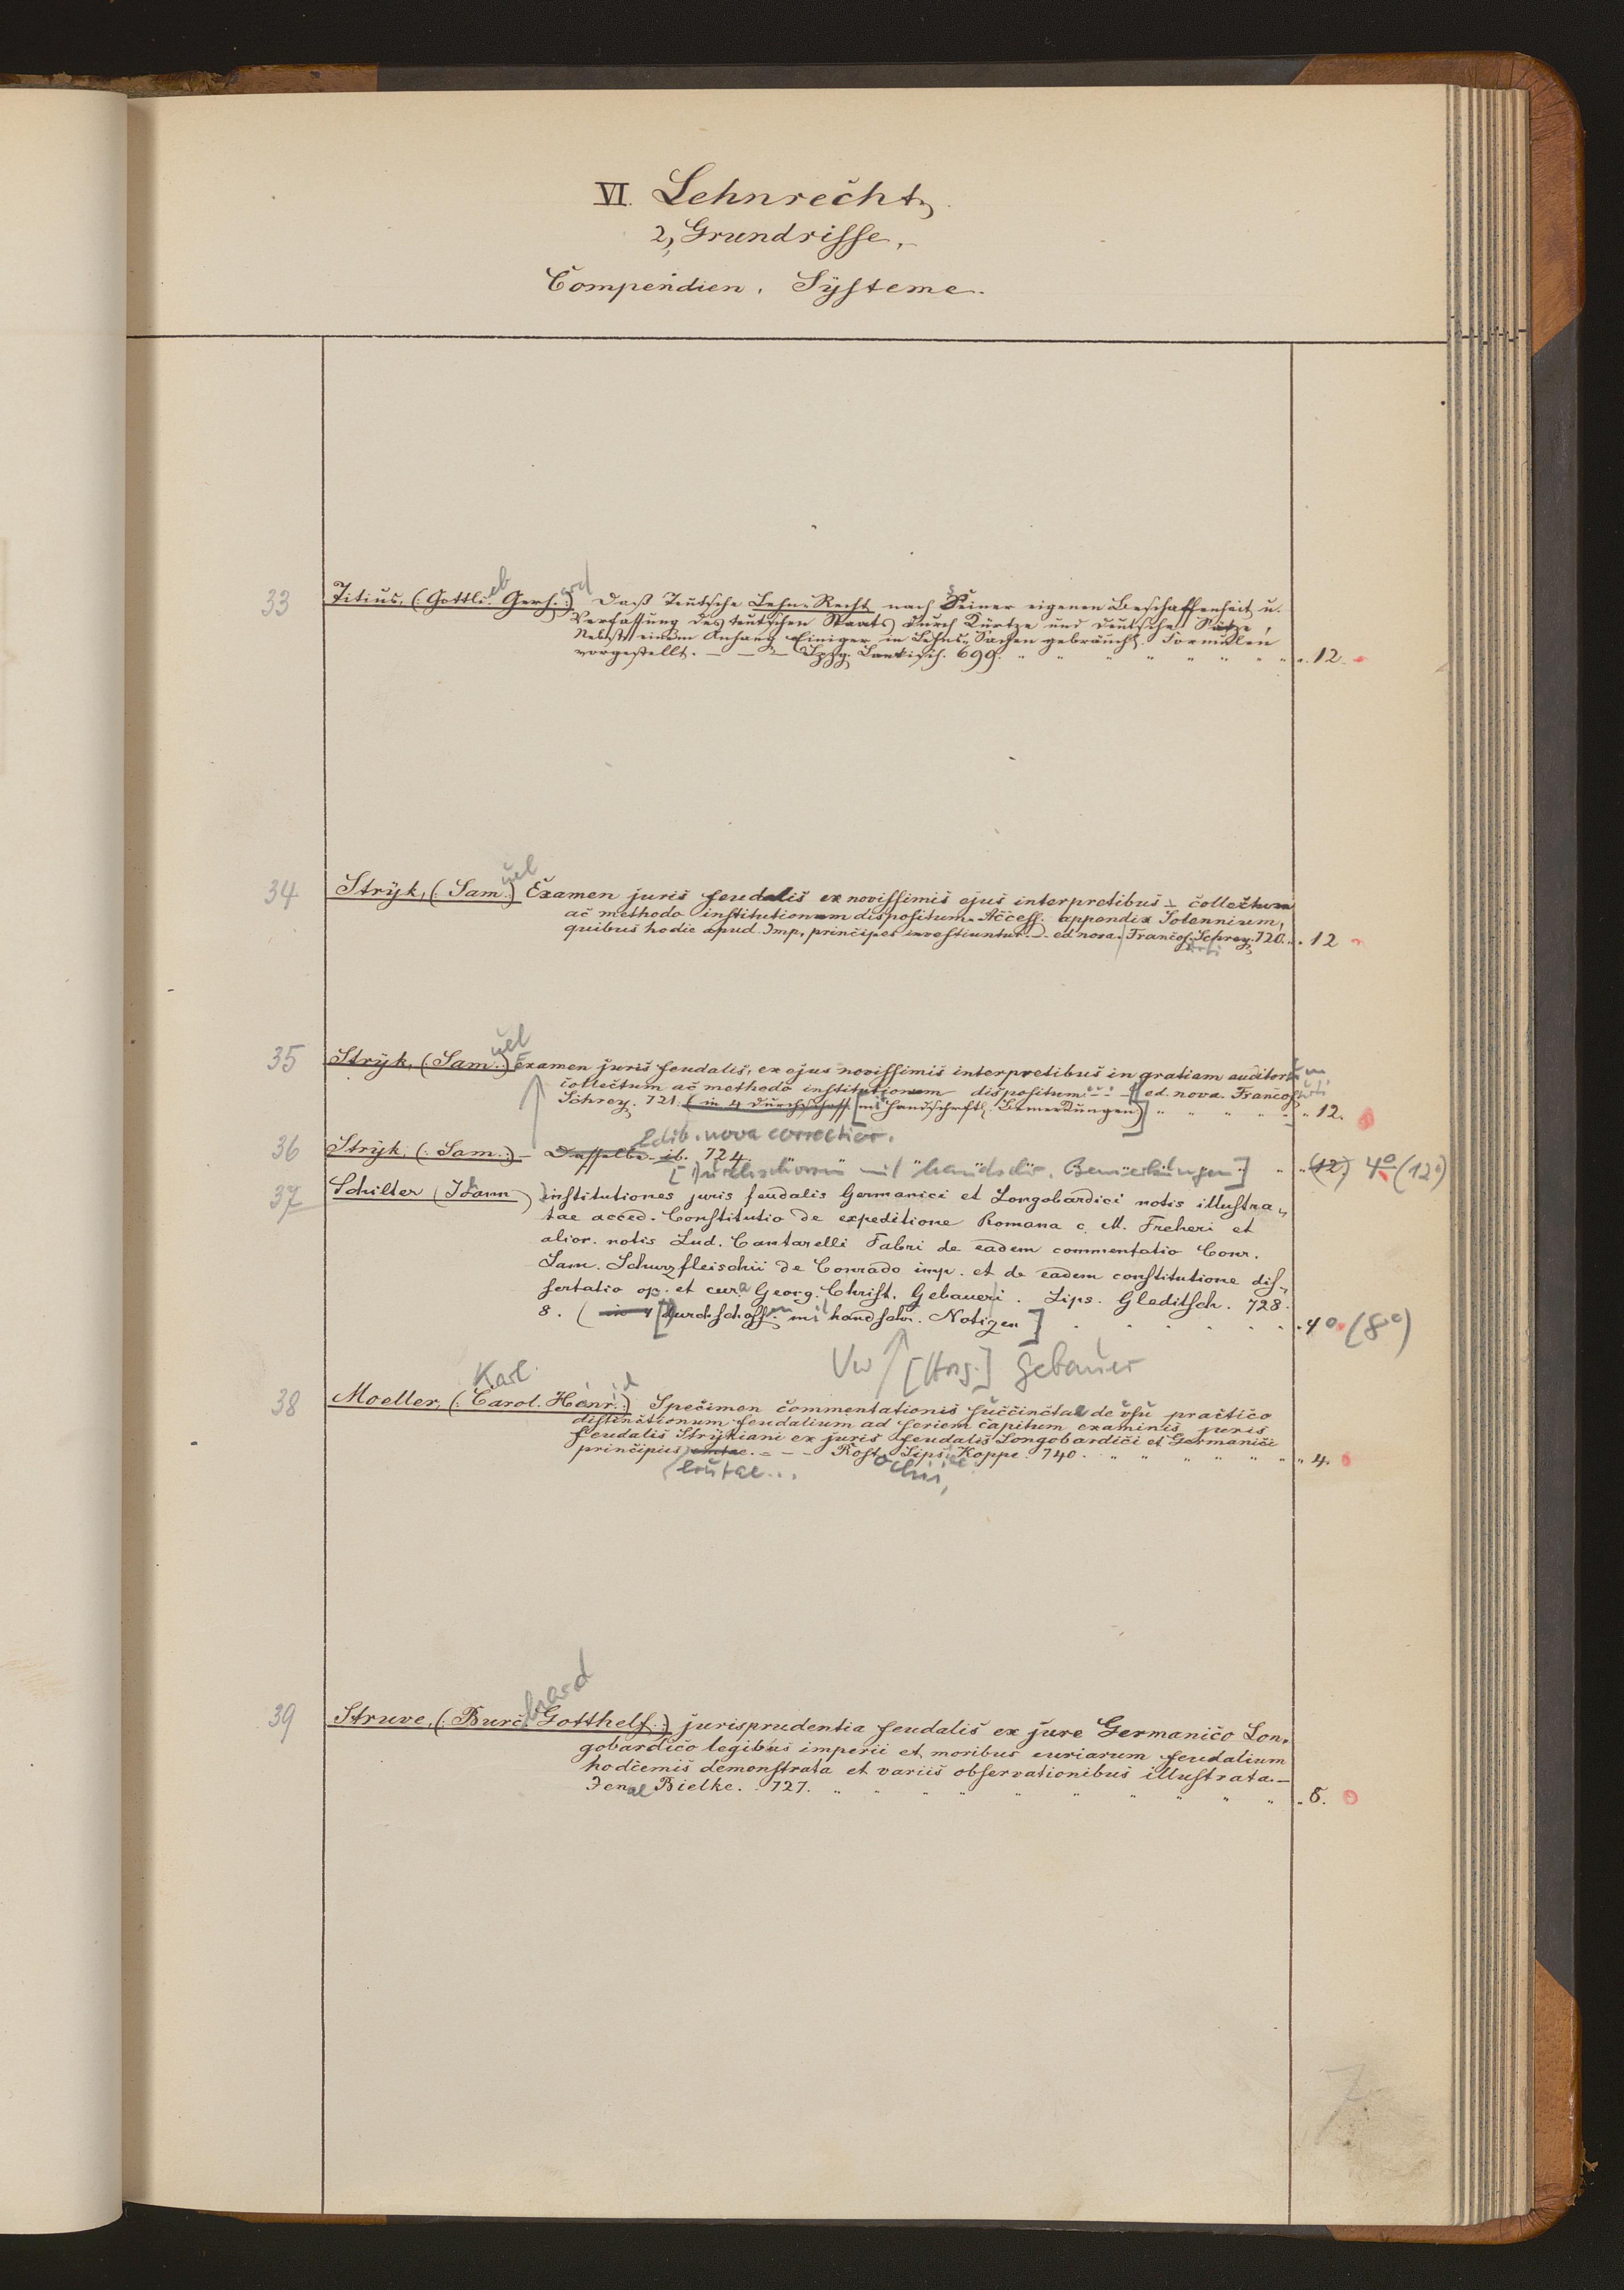 VI. Lehnrecht.
2, Grundrisse,
Compendien. Systeme.
33 Titius, (: Gottlieb Gerhard :) Daß Teutsche Lehn-Recht nach Seiner eigenen Beschaffenheit u.
Verfassung des teutschen Staats durch Kürtze und deutsche Sätze,
Nebst einem Anhang Einiger in Lehns-Sachen gebräuchl. Formulen
vorgestellt. — — Lpzg. Lankisch. 699. " " " " " " " 12.
34 Stryk, (: Samuel) Examen juris feudalis ex novissimis ejus interpretibus - collectum
ac methodo institutionum dispositum. Access. appendix Solennium,
quibus hodie apud Imp. principes investiuntur. — ed nova. Francof. Schrey. 720. " 12
furti
35 Stryk, (Samuel) Examen juris feudalis, ex ejus novissimis interpretibus in gratiam auditorum
collectum ac methodo institutionum dispositum. — [ed. nova. Francofurti
Schrey. 721. (in 4 durchschoss. [mit handschriftl. Bemerkungen)] " " " " " 12.
Edit. nova correctior.
36 Stryk, (: Sam. :) — Dasselbe. ib. 724.
[Durchschossen mit handschr. Bemerkungen] " " (12) 4° (12°)
37 Schilter (Johann) institutiones juris feudalis Germanici et Longobardici notis illustra-
tae acced. Constitutio de expeditione Romana c. M. Freheri et
alior. notis Lud. Cantarelli Fabri de eadem commentatio Conr.
Sam. Schurzfleischii de Conrado imp. et de eadem constitutione dis-
sertatio op. et cura Georg. Christ. Gebaueri. Lips. Gleditsch. 728.
8. (in 4 [durchschossen mit handschr. Notizen] . . . . . . 4° (8°)
Vw [Hrsg.] Gebauer
Karl
38 Moeller, (: Carol. Henr. :) Specimen commentationis succinctae de vsu practico
distinctionum feudalium ad seriem capitum examinis juris
feudalis Strykiani ex juris feudalis Longobardici et Germanici
principiis erutae. — — Rost. Lips. Koppe. 740. " " " " " " 4.
erutae... ochii,
39 Struve, (: Burchard Gotthelf :) jurisprudentia feudalis ex jure Germanico Lon-
gobardico legibus imperii et moribus curiarum feudalium
hodiernis demonstrata et variis observationibus illustrata. —
Jenae Bielke. 727. " " " " " " " " " 8.
7